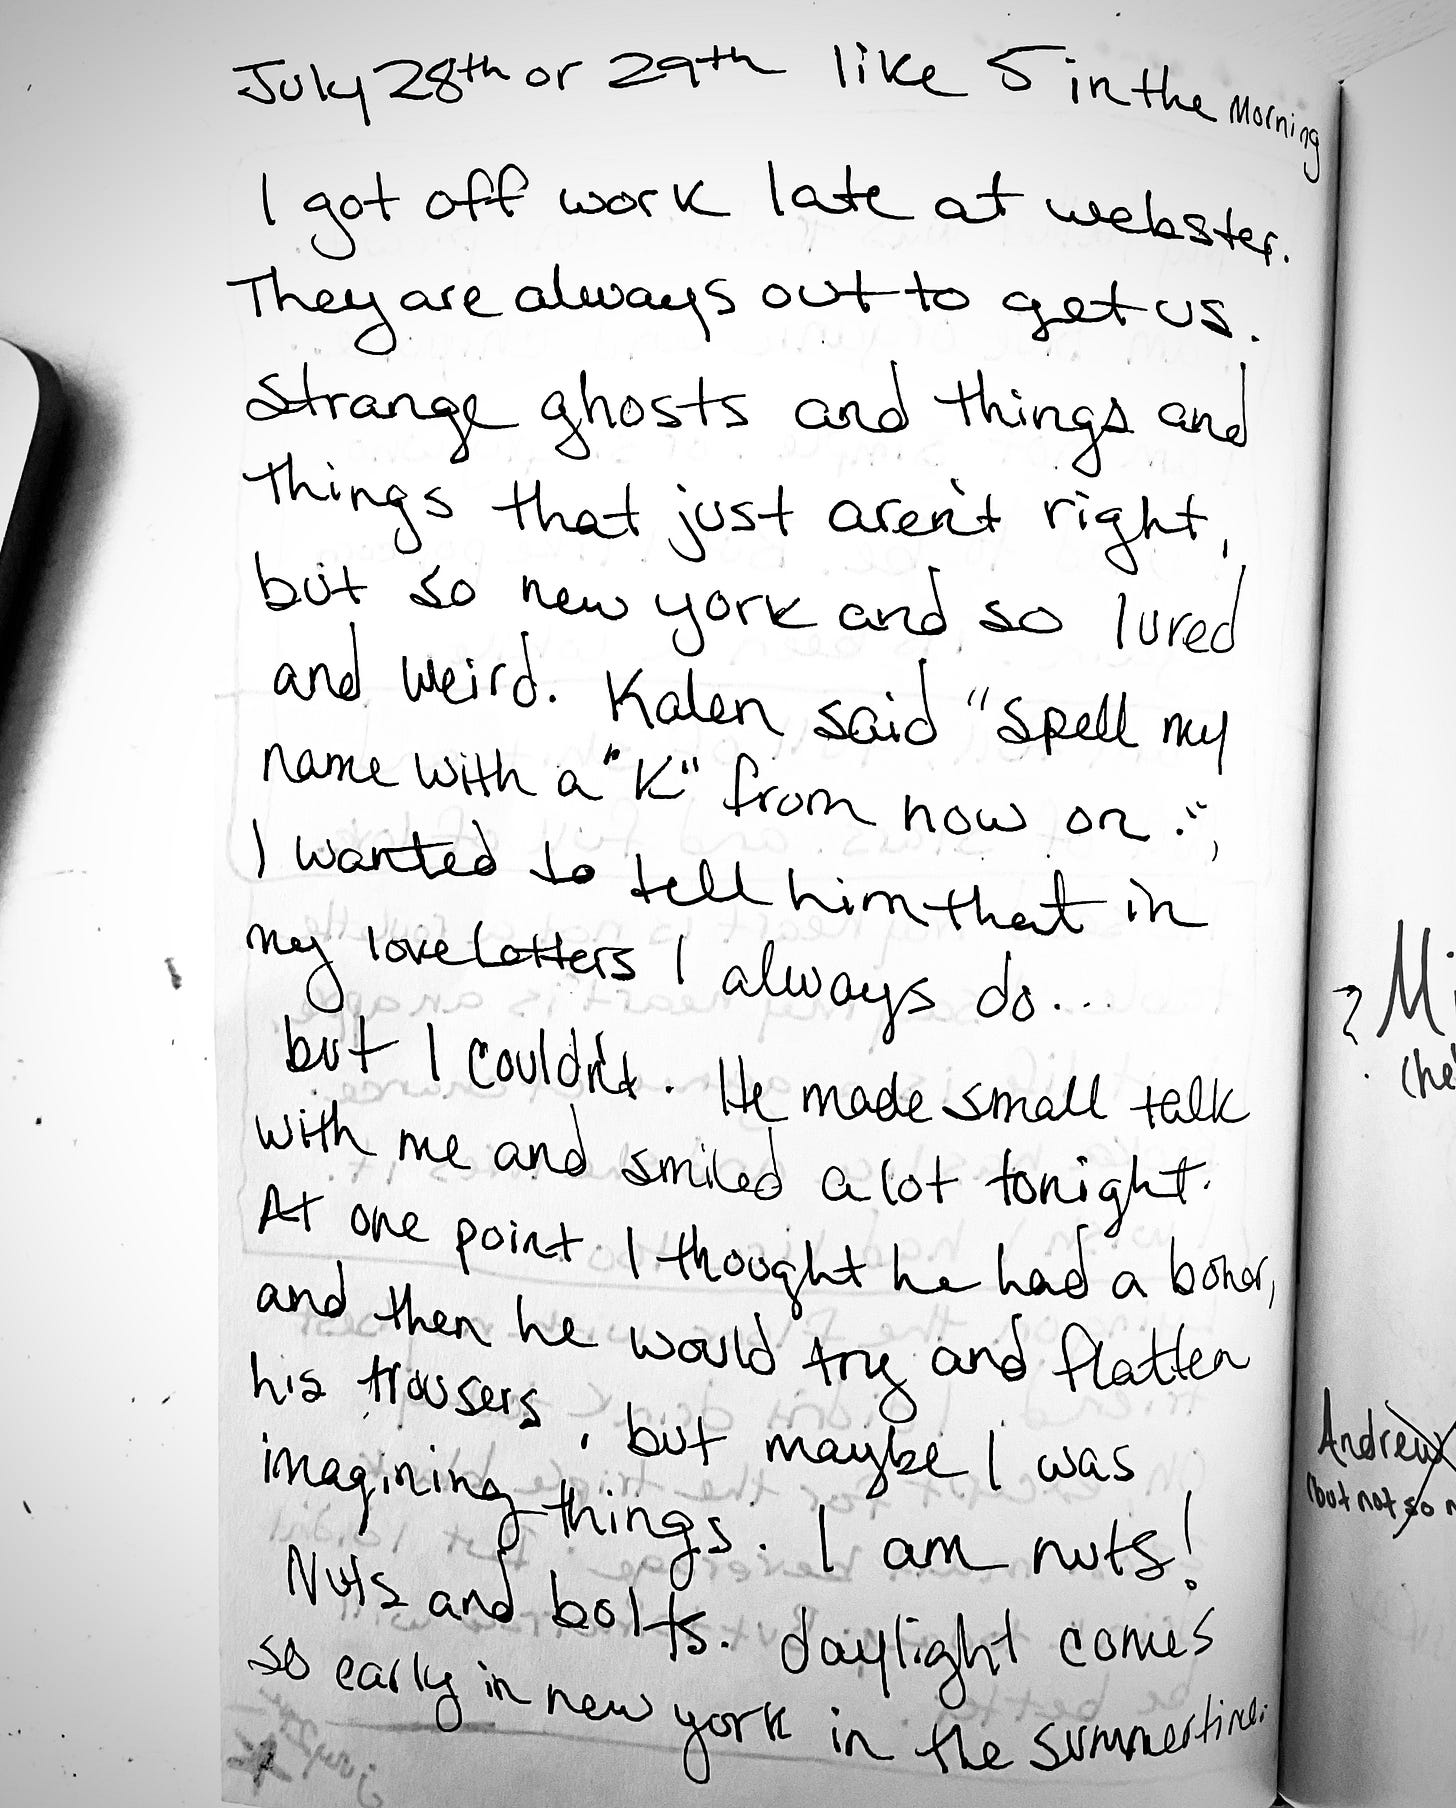 July 28th or 29th like 5 in the Morning
I got off work late at webster.
They are always out to get us.
Strange ghosts and things and
things that just aren't right,
but so new york and so lured
and weird. Kalen said "Spell my
name with a "K" from now on.",
I wanted to tell him that in
my love letters I always do...
but I couldn't. He made small talk
with me and smiled a lot tonight.
At one point I thought he had a boner,
and then he would try and flatten
his trousers, but maybe I was
imagining things. I am nuts!
Nuts and bolts. daylight comes
so early in new york in the summertime.
? Mi
(he
Andrew
(but not so